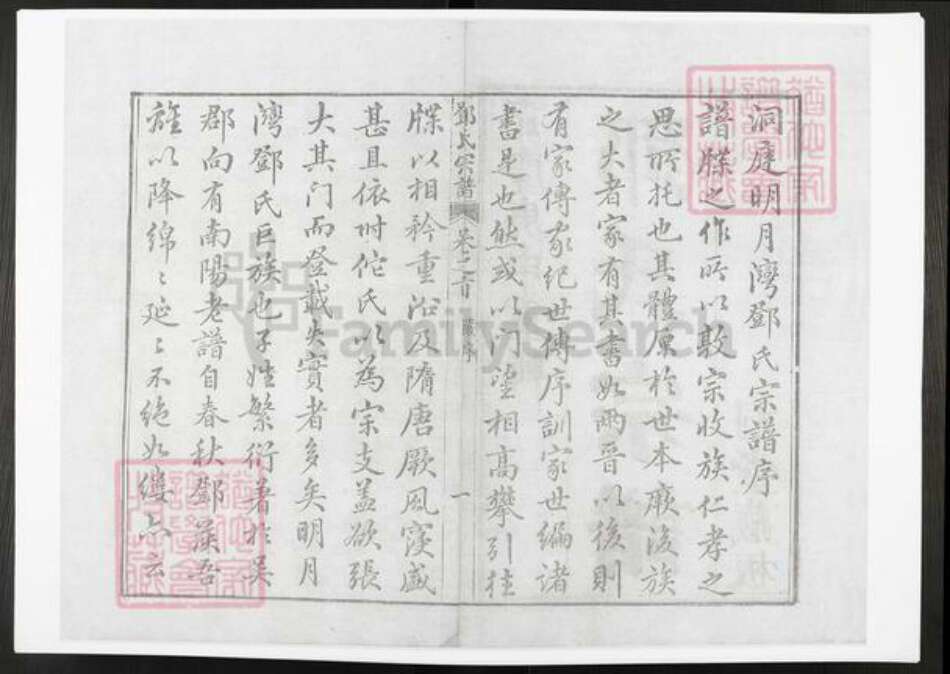 洞庭明月灣鄧氏宗譜序
譜牒之作所以敦宗收族仁孝之
思所托也其體原於世本厥後族
之大者家有其書如兩晉以後則
有家傳家紀世傳序訓家世編諸
書是也然或以門望相高攀引挂
鄧氏宗譜 卷之首 譜序 一
牒以相矜重沿及隋唐厥風寖盛
甚且依附佗氏以為宗支蓋欲張
大其门而登載失實者多矣明月
灣鄧氏巨族也子姓繁衍著於吳
郡向有南陽老譜自春秋鄧 吾
離以降綿〻延〻不絕如縷尔云
FamilySearch